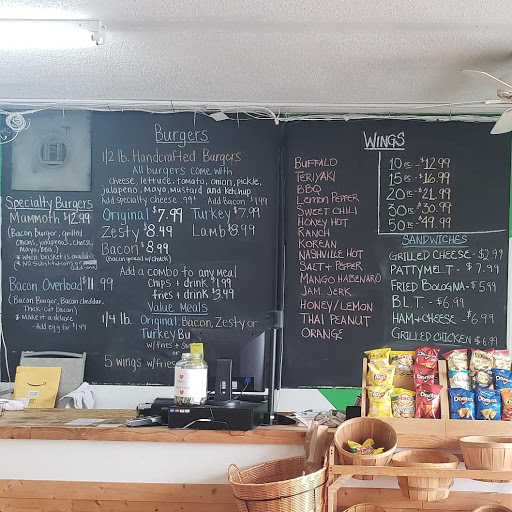 Burgers
1/2 lb. Handcrafted Burgers
All burgers come with
cheese, lettuce, tomato, onion, pickle,
jalapeno, Mayo, Mustard and Ketchup
Add specialty cheese .99¢ Add Bacon $1.99
Original $7.99 Turkey $7.99
Zesty $8.49 Lamb $8.99
Bacon $8.99
(Bacon ground w/chuck)
Add a combo to any meal
Chips + drink $1.99
fries + drink $3.99
Value Meals
1/4 lb. Original, Bacon, Zesty or
Turkey Bu
w/fries +
5 wings w/fries
Specialty Burgers
Mammoth $12.99
(Bacon burger, grilled
onions, jalapenos, cheese,
Mayo, BBQ)
* when brisket is available
* No Substitutions
Bacon Overload $11.99
(Bacon Burger, Bacon cheddar,
Thick-cut Bacon)
* Make it a deluxe
-Add egg for $1.99
WINGS
BUFFALO
TERIYAKI
BBQ
Lemon Pepper
SWEET CHILI
HONEY HOT
RANCH
KOREAN
NASHVILLE HOT
SALT + PEPPER
MANGO HABENARO
JAM. JERK
HONEY/LEMON
THAI PEANUT
ORANGE
10 PC - $12.99
15 PC - $16.99
20 PC - $21.99
30 PC - $30.99
50 PC - $49.99
SANDWICHES
GRILLED CHEESE - $2.99
PATTYMELT - $7.99
FRIED BOLOGNA - $5.99
B.L.T. - $6.99
HAM + CHEESE - $6.99
GRILLED CHICKEN $6.99
Doritos
Doritos